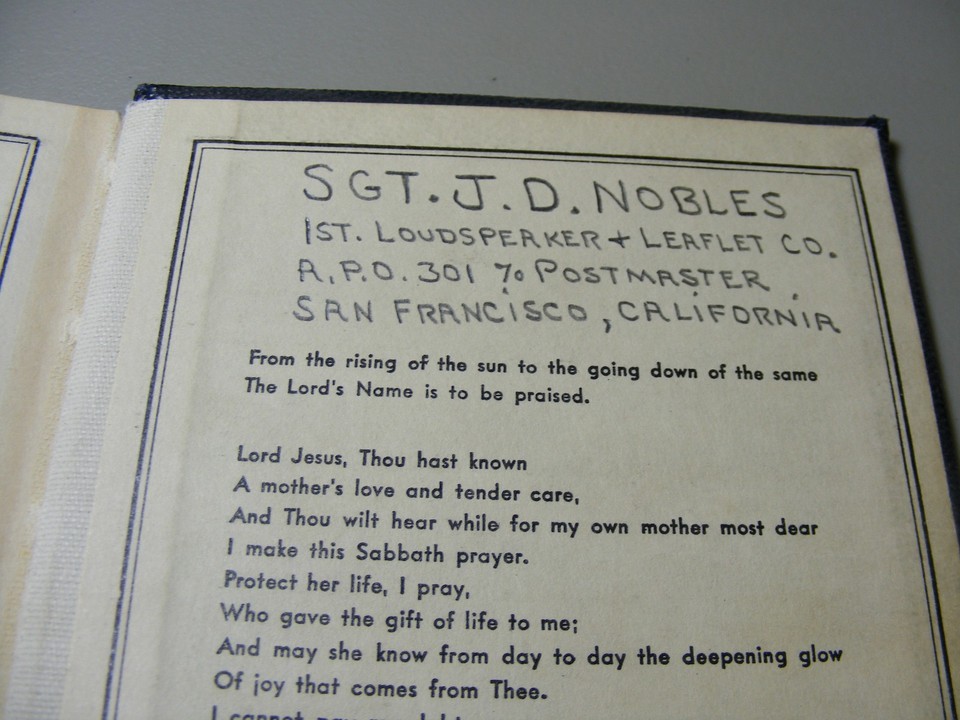 SGT. J. D. NOBLES
1ST. LOUDSPEAKER + LEAFLET CO.
A.P.O. 301 % POSTMASTER
SAN FRANCISCO, CALIFORNIA
From the rising of the sun to the going down of the same
The Lord's Name is to be praised.
Lord Jesus, Thou hast known
A mother's love and tender care,
And Thou wilt hear while for my own mother most dear
I make this Sabbath prayer.
Protect her life, I pray,
Who gave the gift of life to me;
And may she know from day to day the deepening glow
Of joy that comes from Thee.
I cannot pay